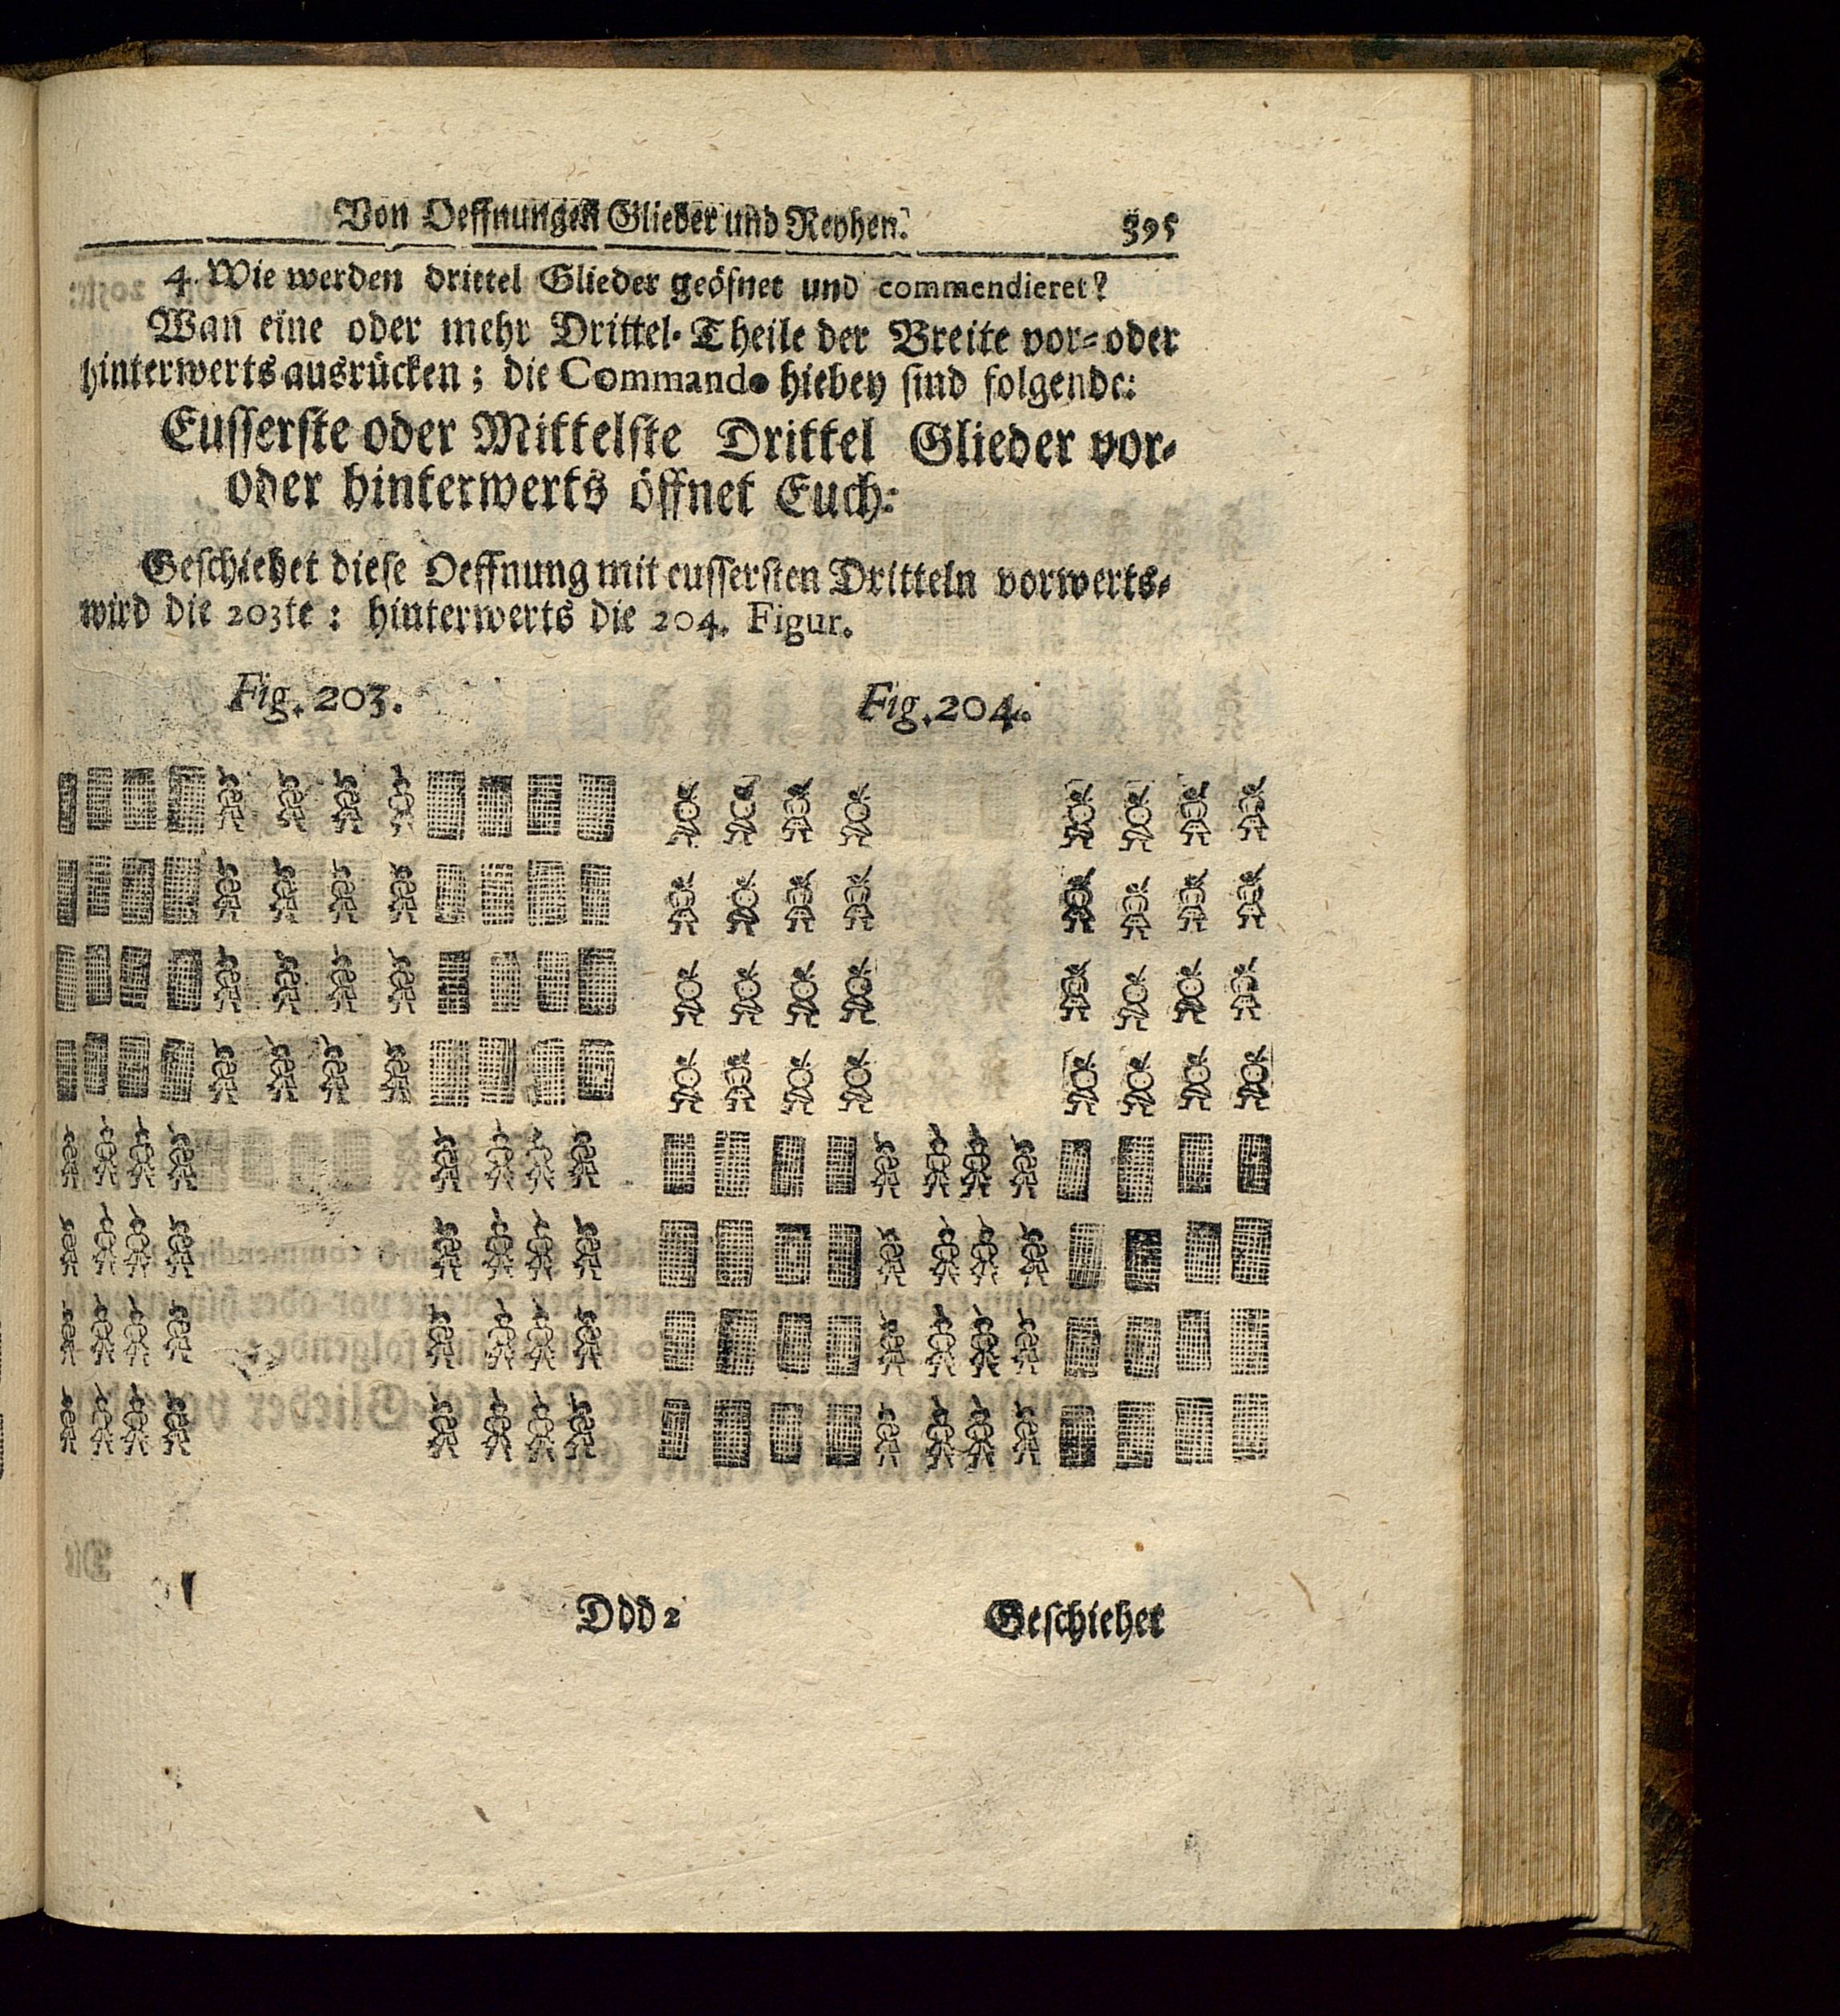 Von Oeffnungen Glieder und Reyhen. 395
4. Wie werden drittel Glieder geöfnet und commendieret?
Wan eine oder mehr Drittel-Theile der Breite vor- oder
hinterwerts ausrücken; die Commando hiebey sind folgende:
Eusserste oder Mittelste Drittel Glieder vor-
oder hinterwerts öffnet Euch:
Geschiehet diese Oeffnung mit eussersten Dritteln vorwerts-
wird die 203te: hinterwerts die 204. Figur.
Fig. 203. Fig. 204.
Ddd 2 Geschiehet